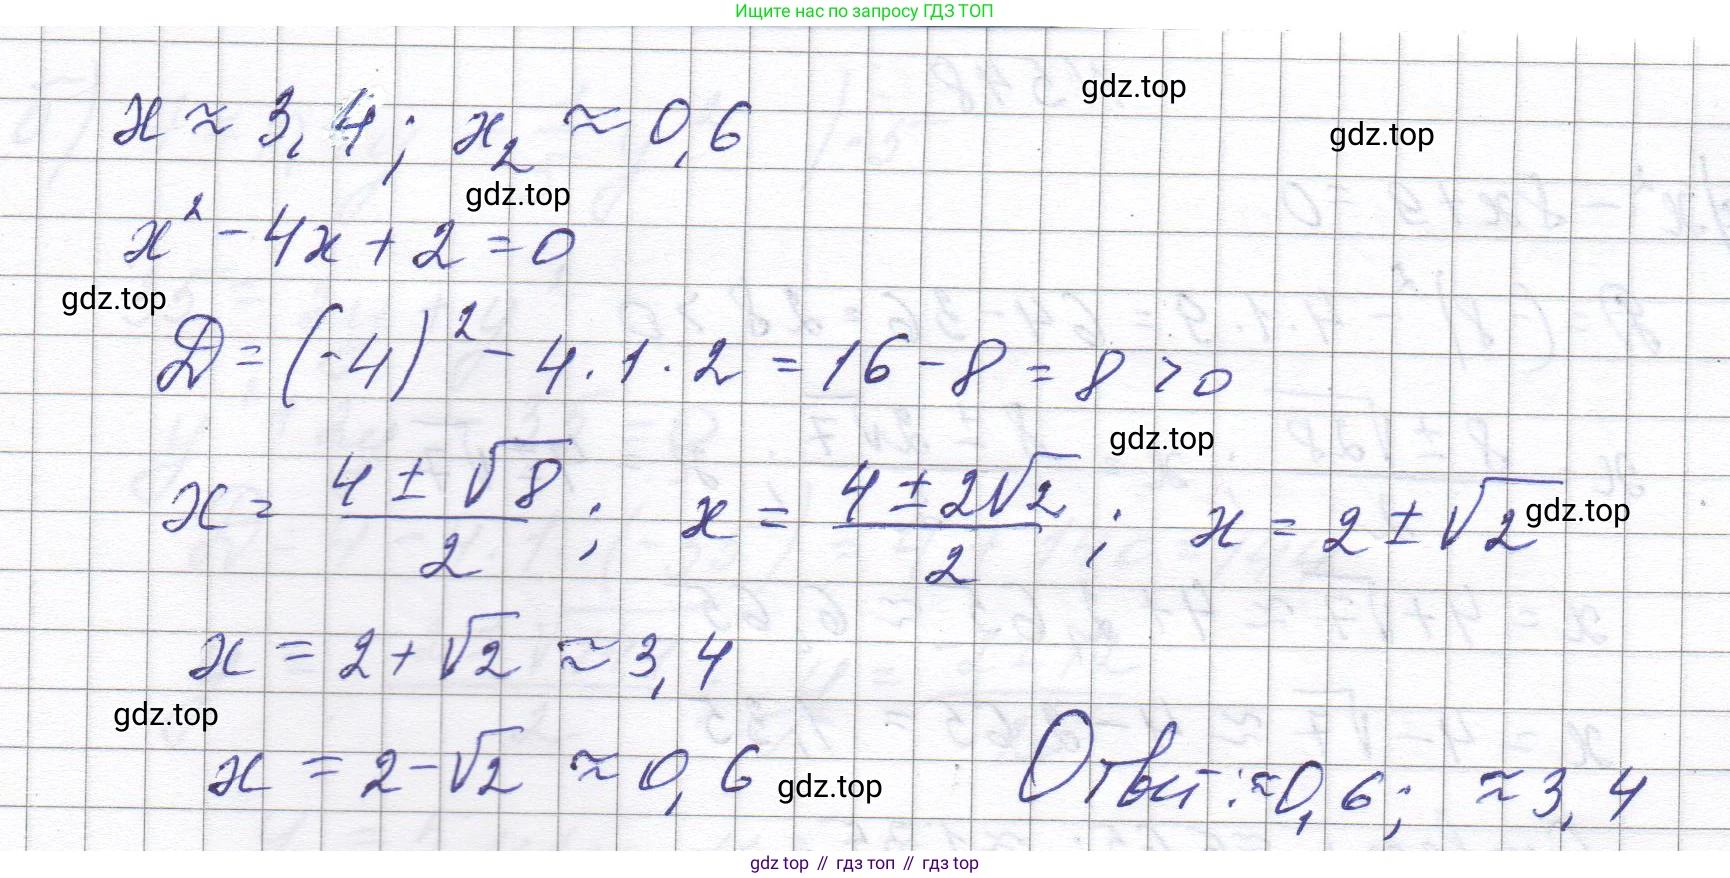 Ищите нас по запросу ГДЗ ТОП
gdz.top
x ≈ 3,4; x₂ ≈ 0,6
gdz.top
gdz.top
x² - 4x + 2 = 0
gdz.top
Д = (-4)² - 4 · 1 · 2 = 16 - 8 = 8 > 0
gdz.top
x = (4 ± √8)/2; x = (4 ± 2√2)/2; x = 2 ± √2
gdz.top
x = 2 + √2 ≈ 3,4
gdz.top
x = 2 - √2 ≈ 0,6
gdz.top
Ответ: ≈0,6; ≈3,4
gdz top // гдз топ // гдз top